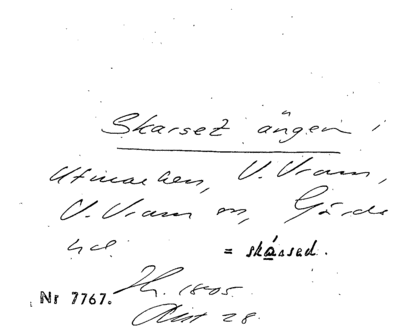 Skarset ängen i
Utmarken, V. Vram,
V. Vram sn, Gärds
hd.
= skássed.
Nr 7767.
1805.
Akt 28.